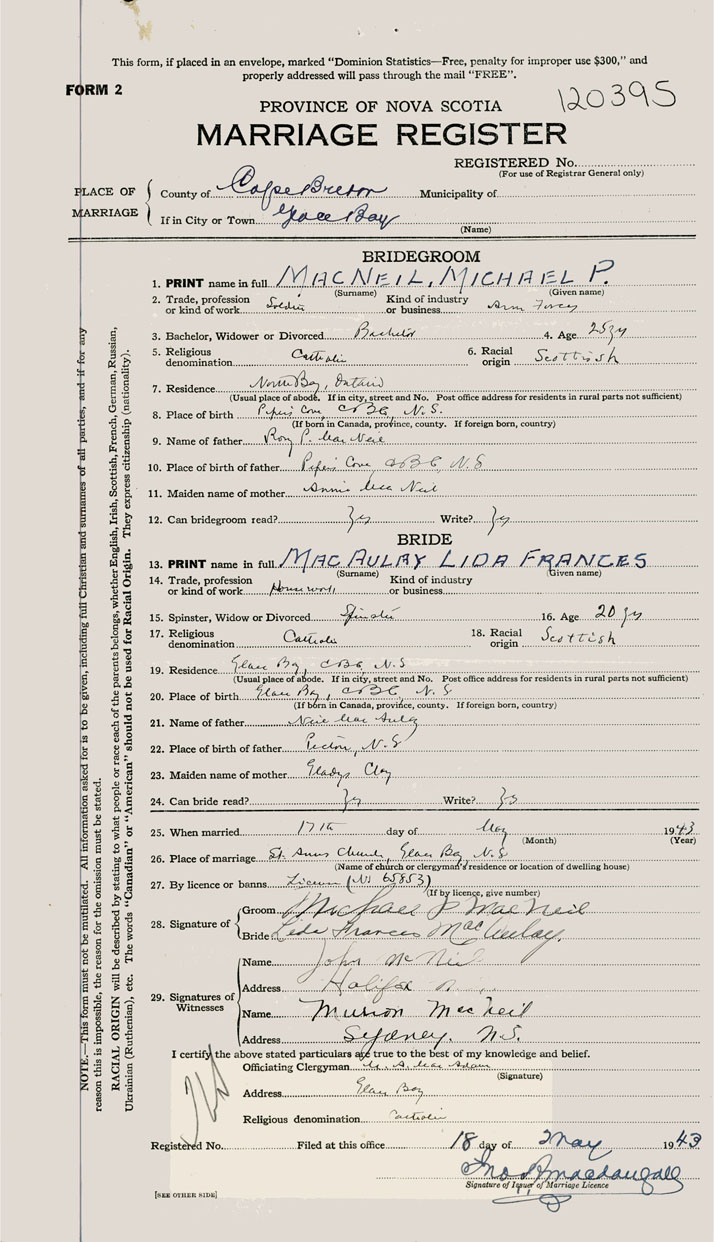 This form, if placed in an envelope, marked "Dominion Statistics—Free, penalty for improper use $300," and
properly addressed will pass through the mail "FREE".
FORM 2
120395
PROVINCE OF NOVA SCOTIA
MARRIAGE REGISTER
REGISTERED No.
(For use of Registrar General only)
PLACE OF MARRIAGE
County of Cape Breton Municipality of
If in City or Town Glace Bay
(Name)
BRIDEGROOM
1. PRINT name in full MACNEIL, MICHAEL P.
(Surname) (Given name)
2. Trade, profession or kind of work Soldier Kind of industry or business Arm Forces
3. Bachelor, Widower or Divorced Bachelor 4. Age 25 yr
5. Religious denomination Catholic 6. Racial origin Scottish
7. Residence North Bay, Ontario
(Usual place of abode. If in city, street and No. Post office address for residents in rural parts not sufficient)
8. Place of birth Pipers Cove, C.B.C, N.S.
(If born in Canada, province, county. If foreign born, country)
9. Name of father Rory P. MacNeil
10. Place of birth of father Pipers Cove C.B.C, N.S
11. Maiden name of mother Annie MacNeil
12. Can bridegroom read? Yes Write? Yes
BRIDE
13. PRINT name in full MACAULAY LIDA FRANCES
(Surname) (Given name)
14. Trade, profession or kind of work Housework Kind of industry or business
15. Spinster, Widow or Divorced Spinster 16. Age 20 yr
17. Religious denomination Catholic 18. Racial origin Scottish
19. Residence Glace Bay, C.B.C, N.S
(Usual place of abode. If in city, street and No. Post office address for residents in rural parts not sufficient)
20. Place of birth Glace Bay, C.B.C, N.S
(If born in Canada, province, county. If foreign born, country)
21. Name of father Neil MacAulay
22. Place of birth of father Pictou, N.S
23. Maiden name of mother Gladys Clay
24. Can bride read? Yes Write? Yes
25. When married 17th day of May 1943
(Month) (Year)
26. Place of marriage St. Anns Church, Glace Bay, N.S
(Name of church or clergyman's residence or location of dwelling house)
27. By licence or banns License (No 65853)
(If by licence, give number)
28. Signature of
Groom Michael P MacNeil
Bride Lida Frances MacAulay.
29. Signatures of Witnesses
Name John McNeil
Address Halifax
Name Munson MacNeil
Address Sydney. N.S.
I certify the above stated particulars are true to the best of my knowledge and belief.
Officiating Clergyman M. A. MacAdam
(Signature)
Address Glace Bay
Religious denomination Catholic
Registered No. Filed at this office 18 day of May 1943
Jno A Macdougall
Signature of Issuer of Marriage Licence
[SEE OTHER SIDE]
NOTE.—This form must not be mutilated. All information asked for is to be given, including full Christian and surnames of all parties, and if for any
reason this is impossible, the reason for the omission must be stated.
RACIAL ORIGIN will be described by stating to what people or race each of the parents belongs, whether English, Irish, Scottish, French, German, Russian,
Ukrainian (Ruthenian), etc. The words "Canadian" or "American" should not be used for Racial Origin. They express citizenship (nationality).